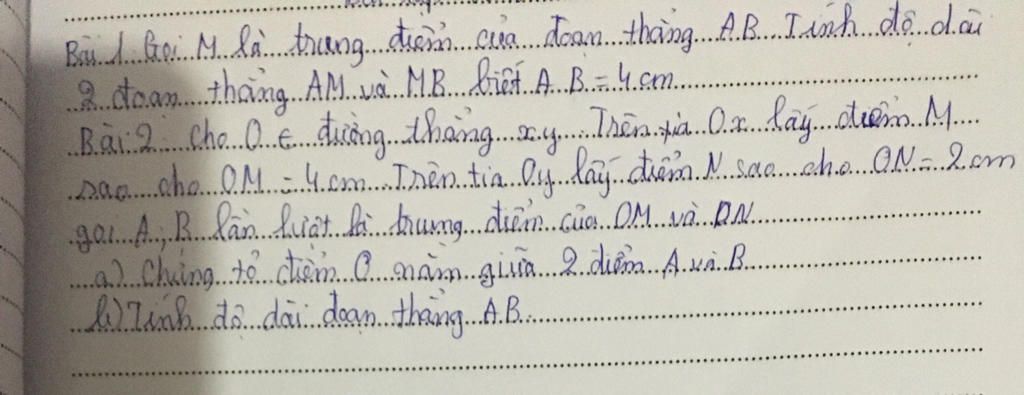 Bài 1. Gọi M là trung điểm của đoạn thẳng AB. Tính độ dài
2 đoạn thẳng AM và MB biết AB = 4 cm
Bài 2 Cho O ∈ đường thẳng xy. Trên tia Ox lấy điểm M
sao cho OM = 4 cm. Trên tia Oy lấy điểm N sao cho ON = 2 cm
gọi A, B lần lượt là trung điểm của OM và ON
a) Chứng tỏ điểm O nằm giữa 2 điểm A và B
b) Tính độ dài đoạn thẳng AB.